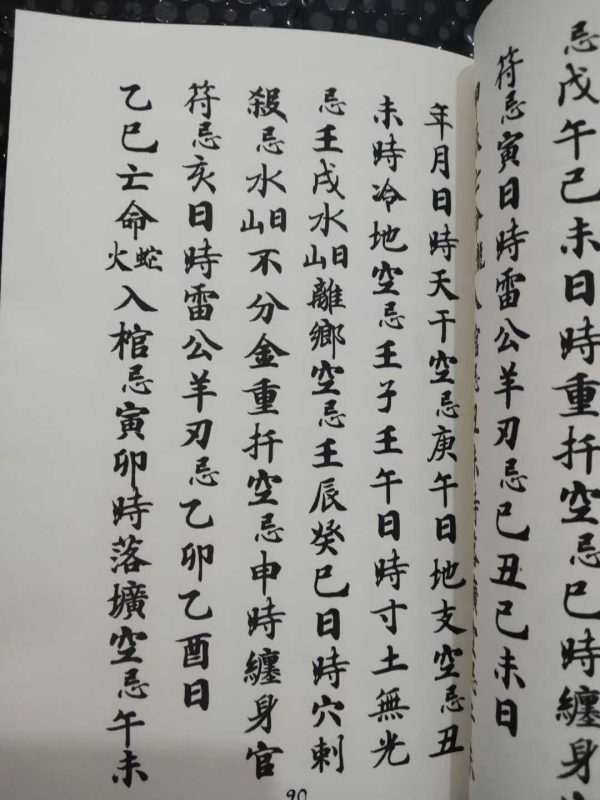 忌戊午己未日時重扦空忌巳時纏身
符忌寅日時雷公羊刃忌己丑己未日
年月日時天干空忌庚午日地支空忌丑
未時冷地空忌壬子壬午日時寸土無光
忌壬戌水日山離鄉空忌壬辰癸巳日時穴刺
殺忌水日山不分金重扦空忌申時纏身官
符忌亥日時雷公羊刃忌乙卯乙酉日
乙巳亡命蛇火入棺忌寅卯時落壙空忌午未
90